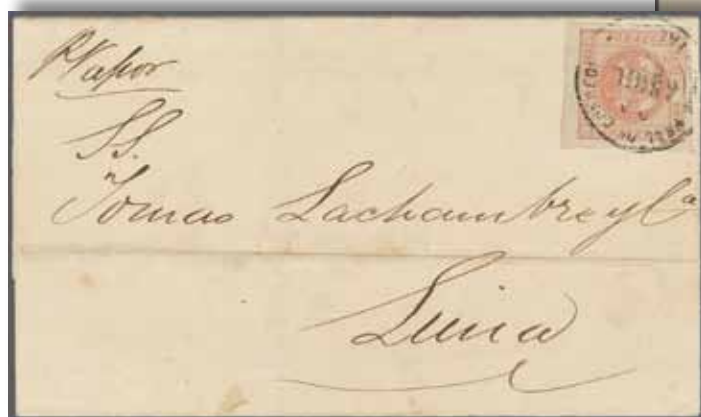 p Vapor
SS.
Tomas Lachambre y Cª
Lima